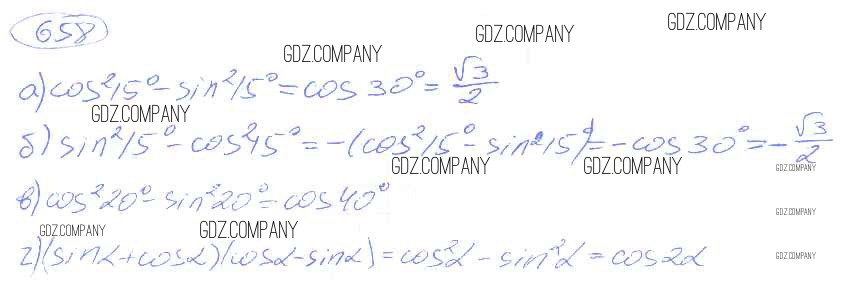 658
GDZ.COMPANY GDZ.COMPANY GDZ.COMPANY
а) cos²15° - sin²15° = cos 30° = √3/2
GDZ.COMPANY
б) sin²15° - cos²15° = -(cos²15° - sin²15°) = -cos 30° = -√3/2
GDZ.COMPANY GDZ.COMPANY GDZ.COMPANY
в) cos²20° - sin²20° = cos 40°
GDZ.COMPANY
GDZ.COMPANY GDZ.COMPANY
г) (sinα + cosα)(cosα - sinα) = cos²α - sin²α = cos2α
GDZ.COMPANY